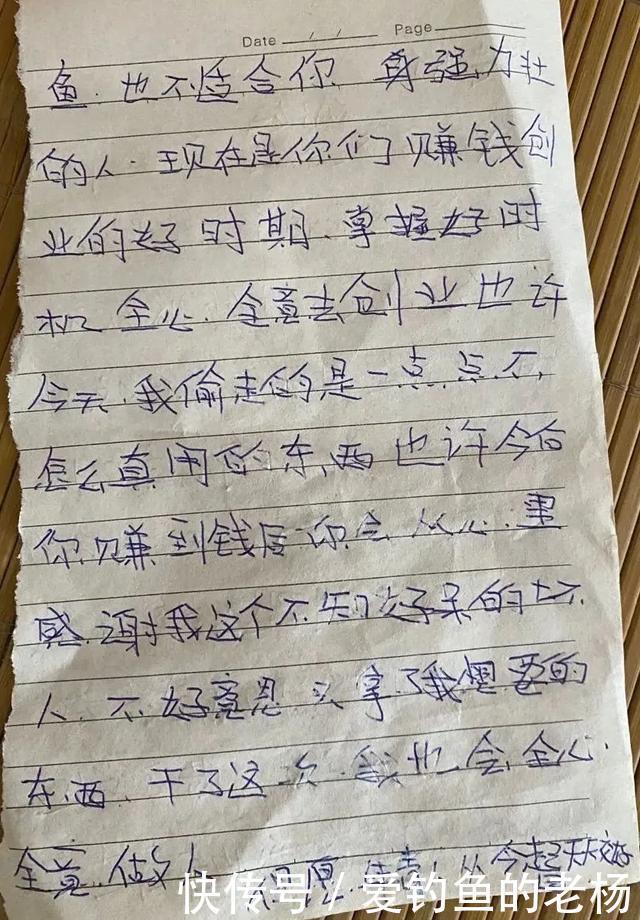 Date / / Page
鱼.也不适合你 身强力壮
的人.现在是你们赚钱创
业的好时期.掌握好时
机全心.全意去创业也许
今天.我偷走的是一点点不.
怎么真用的东西也许今白
你赚到钱后你会从心里
感谢我这个不知好呆的坏
人.不好意思只拿了我想要的
东西.干了这次我也会全心.
全意.做人 从今起天天好
快传号/爱钓鱼的老杨